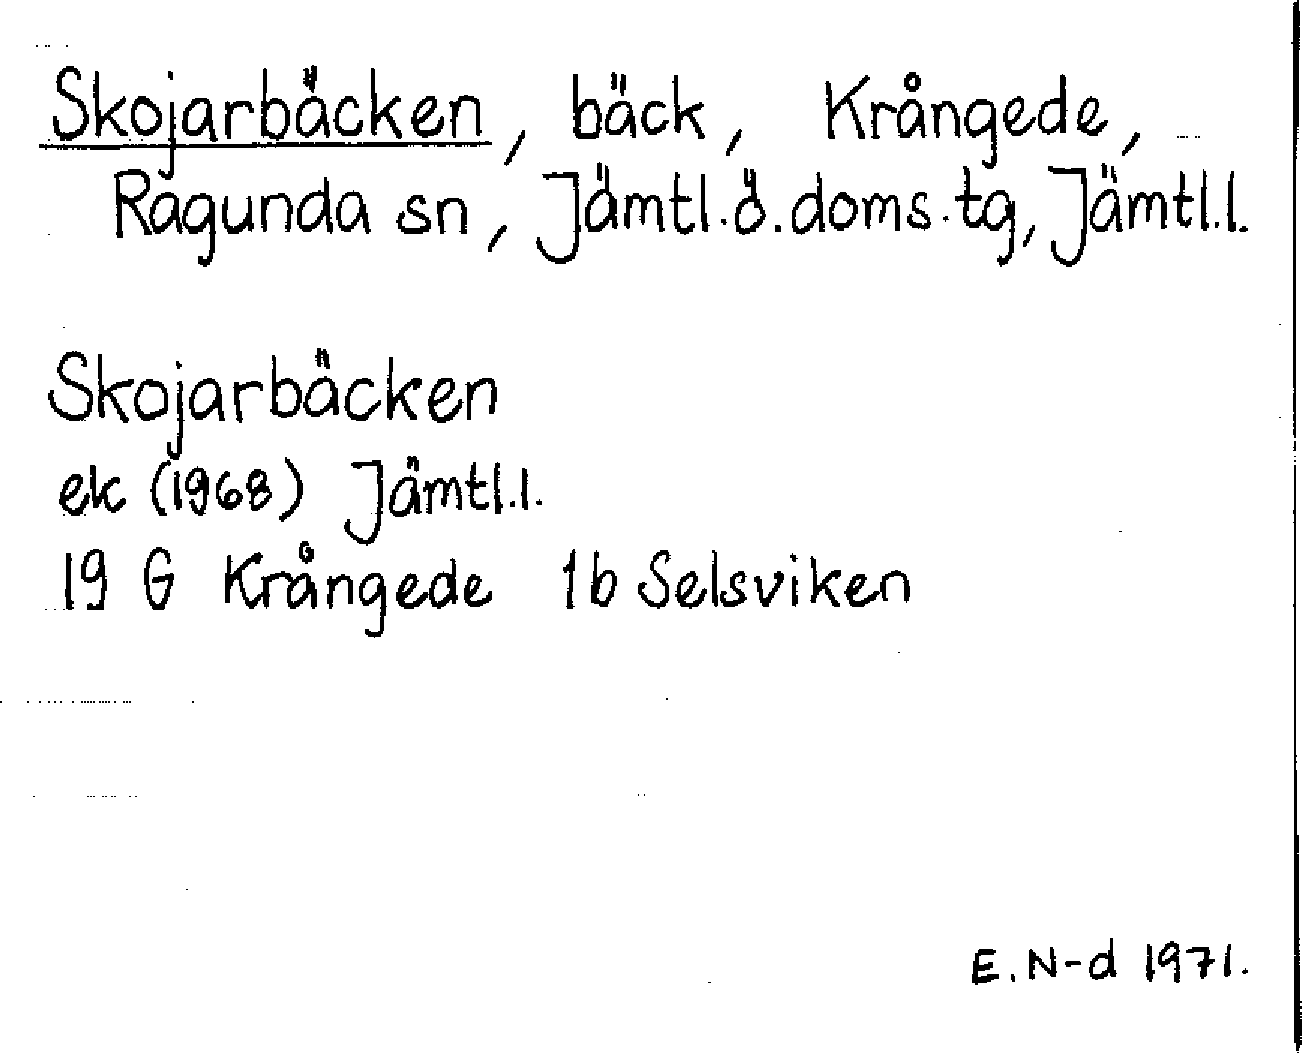 Skojarbäcken, bäck, Krångede,
Ragunda sn, Jämtl.ö.doms.tg, Jämtl.l.
Skojarbäcken
ek (1968) Jämtl.l.
19 G Krångede 1b Selsviken
E.N-d 1971.